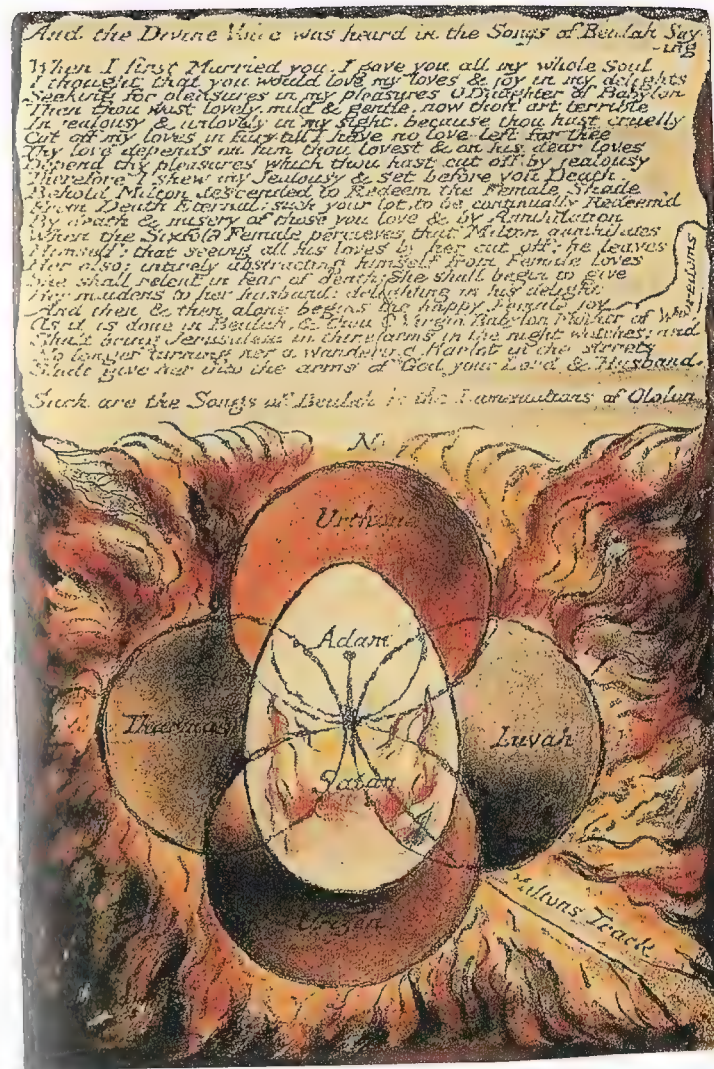 And the Divine Voice was heard in the Songs of Beulah Say-
-ing
When I first Married you, I gave you all my whole Soul
I thought that you would love my loves & joy in my delights
Seeking for pleasures in my pleasures O Daughter of Babylon
Then thou wast lovely, mild & gentle, now thou art terrible
In jealousy & unlovely in my sight, because thou hast cruelly
Cut off my loves in fury till I have no love left for thee
Thy love depends on him thou lovest & on his dear loves
Depend thy pleasures which thou hast cut off by jealousy
Therefore I shew my Jealousy & set before you Death.
Behold Milton descended to Redeem the Female Shade
From Death Eternal; such your lot, to be continually Redeem'd
By death & misery of those you love & by Annihilation
When the Sixfold Female perceives that Milton annihilates
Himself: that seeing all his loves by her cut off: he leaves
Her also: intirely abstracting himself from Female loves
She shall relent in fear of death: She shall begin to give
Her maidens to her husband: delighting in his delight
And then & then alone begins the happy Female joy
As it is done in Beulah, & thou O Virgin Babylon Mother of Whoredoms
Shalt bring Jerusalem in thine arms in the night watches; and
No longer turning her a wandering Harlot in the streets
Shalt give her into the arms of God your Lord & Husband.
Such are the Songs of Beulah in the Lamentations of Ololon
N
Urthona
Adam
Tharmas
Luvah
Satan
Urizen
Miltons Track